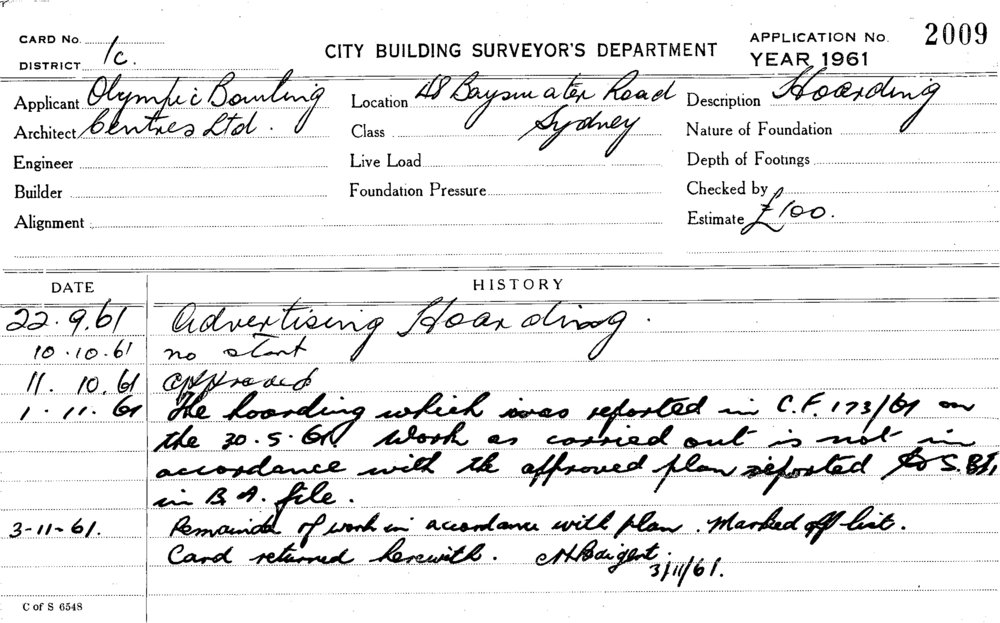 CARD No.
DISTRICT 1c.
CITY BUILDING SURVEYOR'S DEPARTMENT
APPLICATION No. 2009
YEAR 1961
Applicant Olympic Bowling
Architect Centres Ltd.
Engineer
Builder
Alignment
Location 48 Bayswater Road
Class Sydney
Live Load
Foundation Pressure
Description Hoarding
Nature of Foundation
Depth of Footings
Checked by
Estimate £100.
DATE HISTORY
22.9.61 Advertising Hoarding.
10.10.61 no start
11.10.61 Approved
1.11.61 The hoarding which was reported in C.F. 173/61 on
the 30.5.61 Work as carried out is not in
accordance with the approved plan reported to S.B.I.
in B.A. file.
3-11-61. Remainder of work in accordance with plan. Marked off list.
Card returned herewith.
3/11/61.
C of S 6548